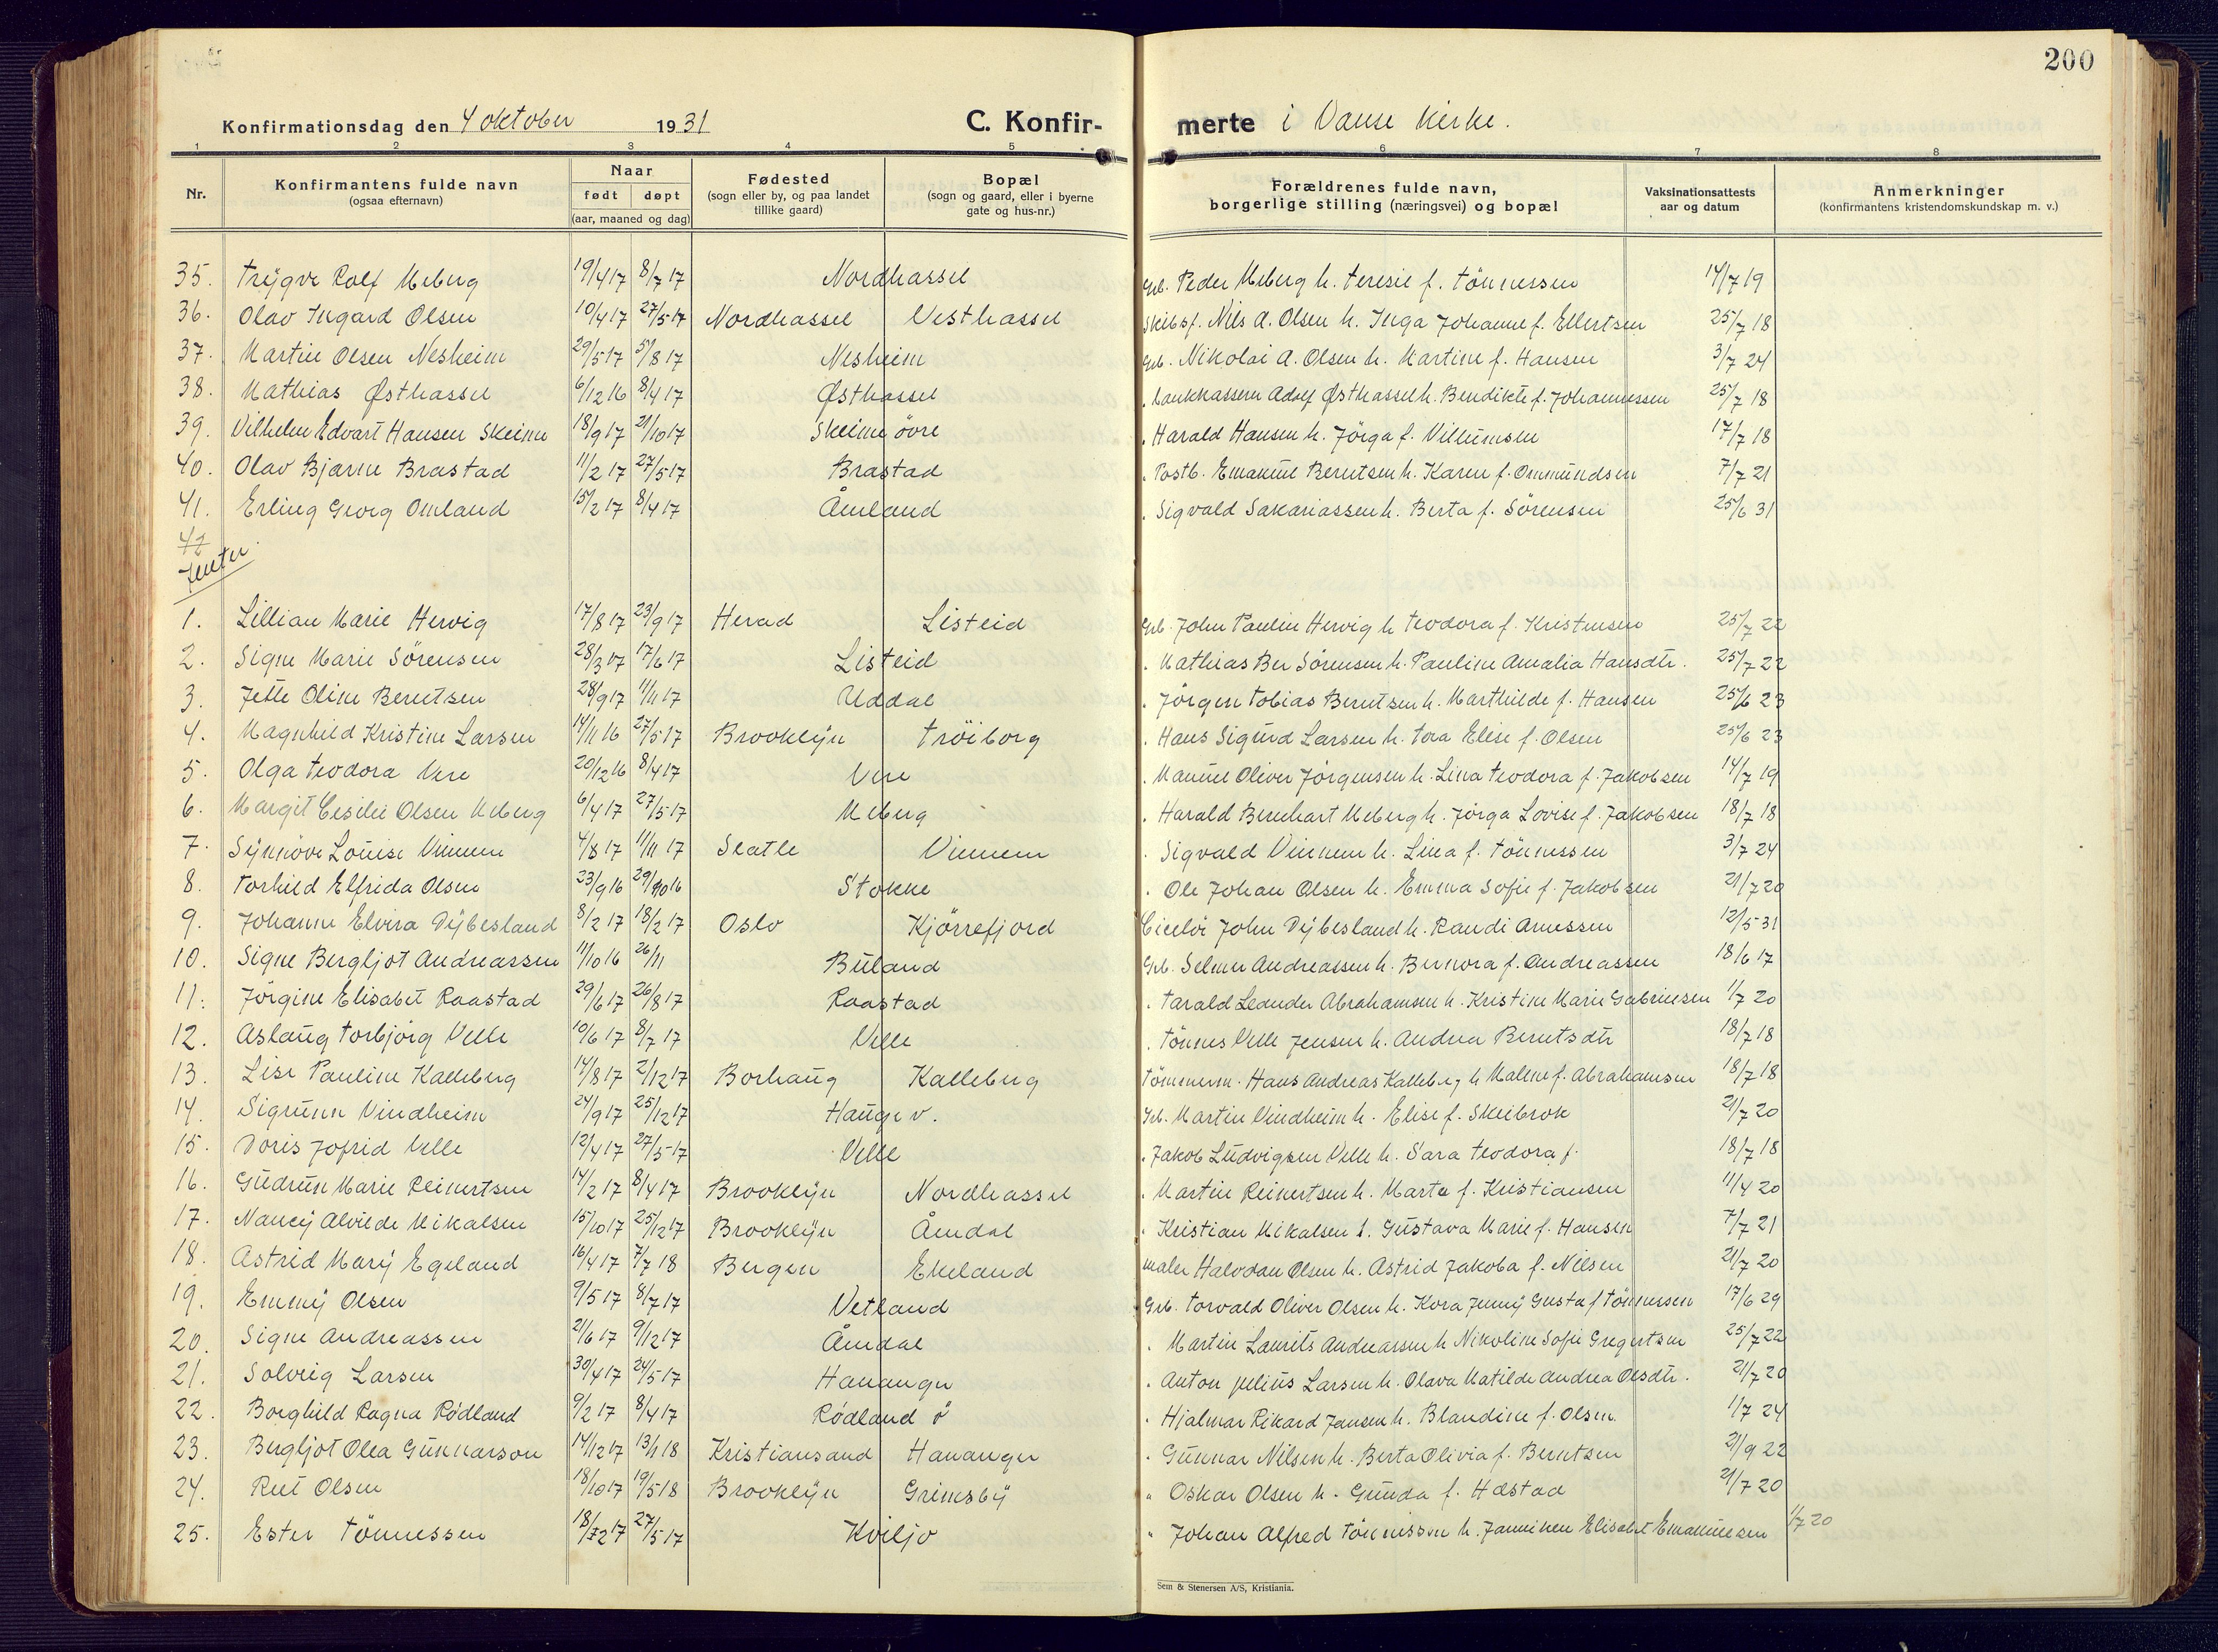 200
Konfirmationsdag den 4 oktober 1931 C. Konfir- merte i Vanse kirke.
1 2 3 4 5 6 7 8
Nr. Konfirmantens fulde navn (ogsaa efternavn) Naar født døpt (aar, maaned og dag) Fødested (sogn eller by, og paa landet tillike gaard) Bopæl (sogn og gaard, eller i byerne gate og hus-nr.) Forældrenes fulde navn, borgerlige stilling (næringsvei) og bopæl Vaksinationsattests aar og datum Anmerkninger (konfirmantens kristendomskundskap m. v.)
35. Trygve Rolf Meberg 19/4 17 8/7 17 Nordhassel Grb. Peder Meberg h. Teresie f. Tönnessen 14/7 19
36. Olav Ingard Olsen 10/4 17 27/5 17 Nordhassel Vesthassel Skibsf. Nils A. Olsen h. Inga Johanne f. Ellertsen 25/7 18
37. Martin Olsen Nesheim 29/5 17 5/8 17 Nesheim Grb. Nikolai A. Olsen h. Martine f. Hansen 3/7 24
38. Mathias Østhassel 6/12 16 8/4 17 Østhassel . bankkasserer Adolf Østhassel h. Bendikte f. Johannessen 25/7 18
39. Vilhelm Edvart Hansen Skeime 18/9 17 21/10 17 Skeime övre . Harald Hansen h. Jörga f. Villumsen 17/7 18
40. Olav Bjarne Brastad 11/2 17 27/5 17 Brastad . Postb. Emanuel Berntsen h. Karen f. Ommundsen 7/7 21
41. Erling Georg Omland 15/2 17 8/4 17 Åmland . Sigvald Sakariassen h. Berta f. Sörensen 25/6 31
42
Jenter
1. Lillian Marie Hervig 17/8 17 23/9 17 Herad Listeid Grb. John Paulin Hervig h Teodora f. Kristensen 25/7 22
2. Signe Marie Sörensen 28/3 17 17/6 17 Listeid . Mathias Ber Sörensen h. Pauline Amalia Hansdtr. 25/7 22
3. Jette Oline Berntsen 28/9 17 11/11 17 Uddal . Jörgen Tobias Berntsen h. Marthilde f. Hansen 25/6 23
4. Magnhild Kristine Larsen 14/11 16 27/5 17 Brooklyn Tröiborg . Hans Sigurd Larsen h. Tora Elise f. Olsen 25/6 23
5. Olga Teodora Vere 20/12 16 8/4 17 Vere . Manuel Oliver Jörgensen h. Lina Teodora f. Jakobsen 14/7 19
6. Margit Cesilie Olsen Meberg 6/4 17 27/5 17 Meberg . Harald Bernhart Meberg h. Jörga Lovise f. Jakobsen 18/7 18
7. Synnöve Louise Vinnem 4/8 17 11/11 17 Seatle Vinnem . Sigvald Vinnem h. Lina f. Tönnessen 3/7 24
8. Torhild Elfrida Olsen 23/9 16 29/10 16 Stokke . Ole Johan Olsen h. Emma Sofie f. Jakobsen 21/7 20
9. Johanne Elvira Dybesland 8/2 17 18/2 17 Oslo Kjörrefjord John Dybesland h. Randi Arnessen 12/5 31
10. Signe Bergljot Andreassen 11/10 16 26/11 Buland Grb. Selmer Andreassen h. Bernora f. Andreassen 18/6 17
11. Jörgine Elisabet Raastad 29/6 17 26/8 17 Raastad . Tarald Leander Abrahamsen h. Kristine Marie Gabrielsen 1/7 20
12. Aslaug Torbjörg Velle 10/6 17 8/7 17 Velle . Tönnes Velle Jensen h. Andrea Berntsdtr 18/7 18
13. Lise Pauline Kalleberg 14/8 17 2/12 17 Borhaug Kalleberg Tömmerm. Hans Andreas Kalleberg h Malene f. Abrahamsen 18/7 18
14. Sigrunn Vindheim 24/9 17 25/12 17 Hauge v. Grb. Martin Vindheim h. Elise f. Skeibrok 21/7 20
15. Doris Jofrid Velle 12/4 17 27/5 17 Velle . Jakob Ludvigsen Velle h. Sara Teodora f. 18/7 18
16. Gudrun Marie Reinertsen 14/2 17 8/4 17 Brooklyn Nordhassel . Martin Reinertsen h. Marta f. Kristiansen 11/4 20
17. Nancy Alvilde Mikalsen 15/10 17 25/12 17 Brooklyn Åmdal . Kristian Mikalsen h. Gustava Marie f. Hansen 7/7 21
18. Astrid Mary Egeland 16/4 17 7/7 18 Bergen Ekeland maler Halvdan Olsen h. Astrid Jakoba f. Nilsen 21/7 20
19. Emmy Olsen 9/5 17 8/7 17 Vetland Grb. Torvald Oliver Olsen h. Kora Jenny Gusta f Tönnessen 17/6 29
20. Signe Andreassen 21/6 17 9/12 17 Åmdal . Martin Laurits Andreassen h Nikoline Sofie Gregertsen 25/7 22
21. Solveig Larsen 30/4 17 24/5 17 Hananger . Anton Julius Larsen h. Olava Matilde Andrea Olsdtr. 21/7 20
22. Borghild Ragna Rödland 9/2 17 8/4 17 Rödland ö . Hjalmar Rikard Jansen h. Blandine f. Olsen. 1/7 24
23. Bergljot Olea Gunnarson 14/12 17 13/1 18 Kristiansand Hananger . Gunnar Nilsen h. Berta Olivia f. Berntsen 21/9 22
24. Rut Olsen 18/10 17 19/5 18 Brooklyn Grimsby " Oskar Olsen h. Gunda f. Hæstad 21/7 20
25. Ester Tönnessen 18/2 17 27/5 17 Kviljo " Johan Alfred Tönnessen h. Janniken Elisabet Emanuelsen 1/7 20
Sem & Stenersen A/S, Kristiania.